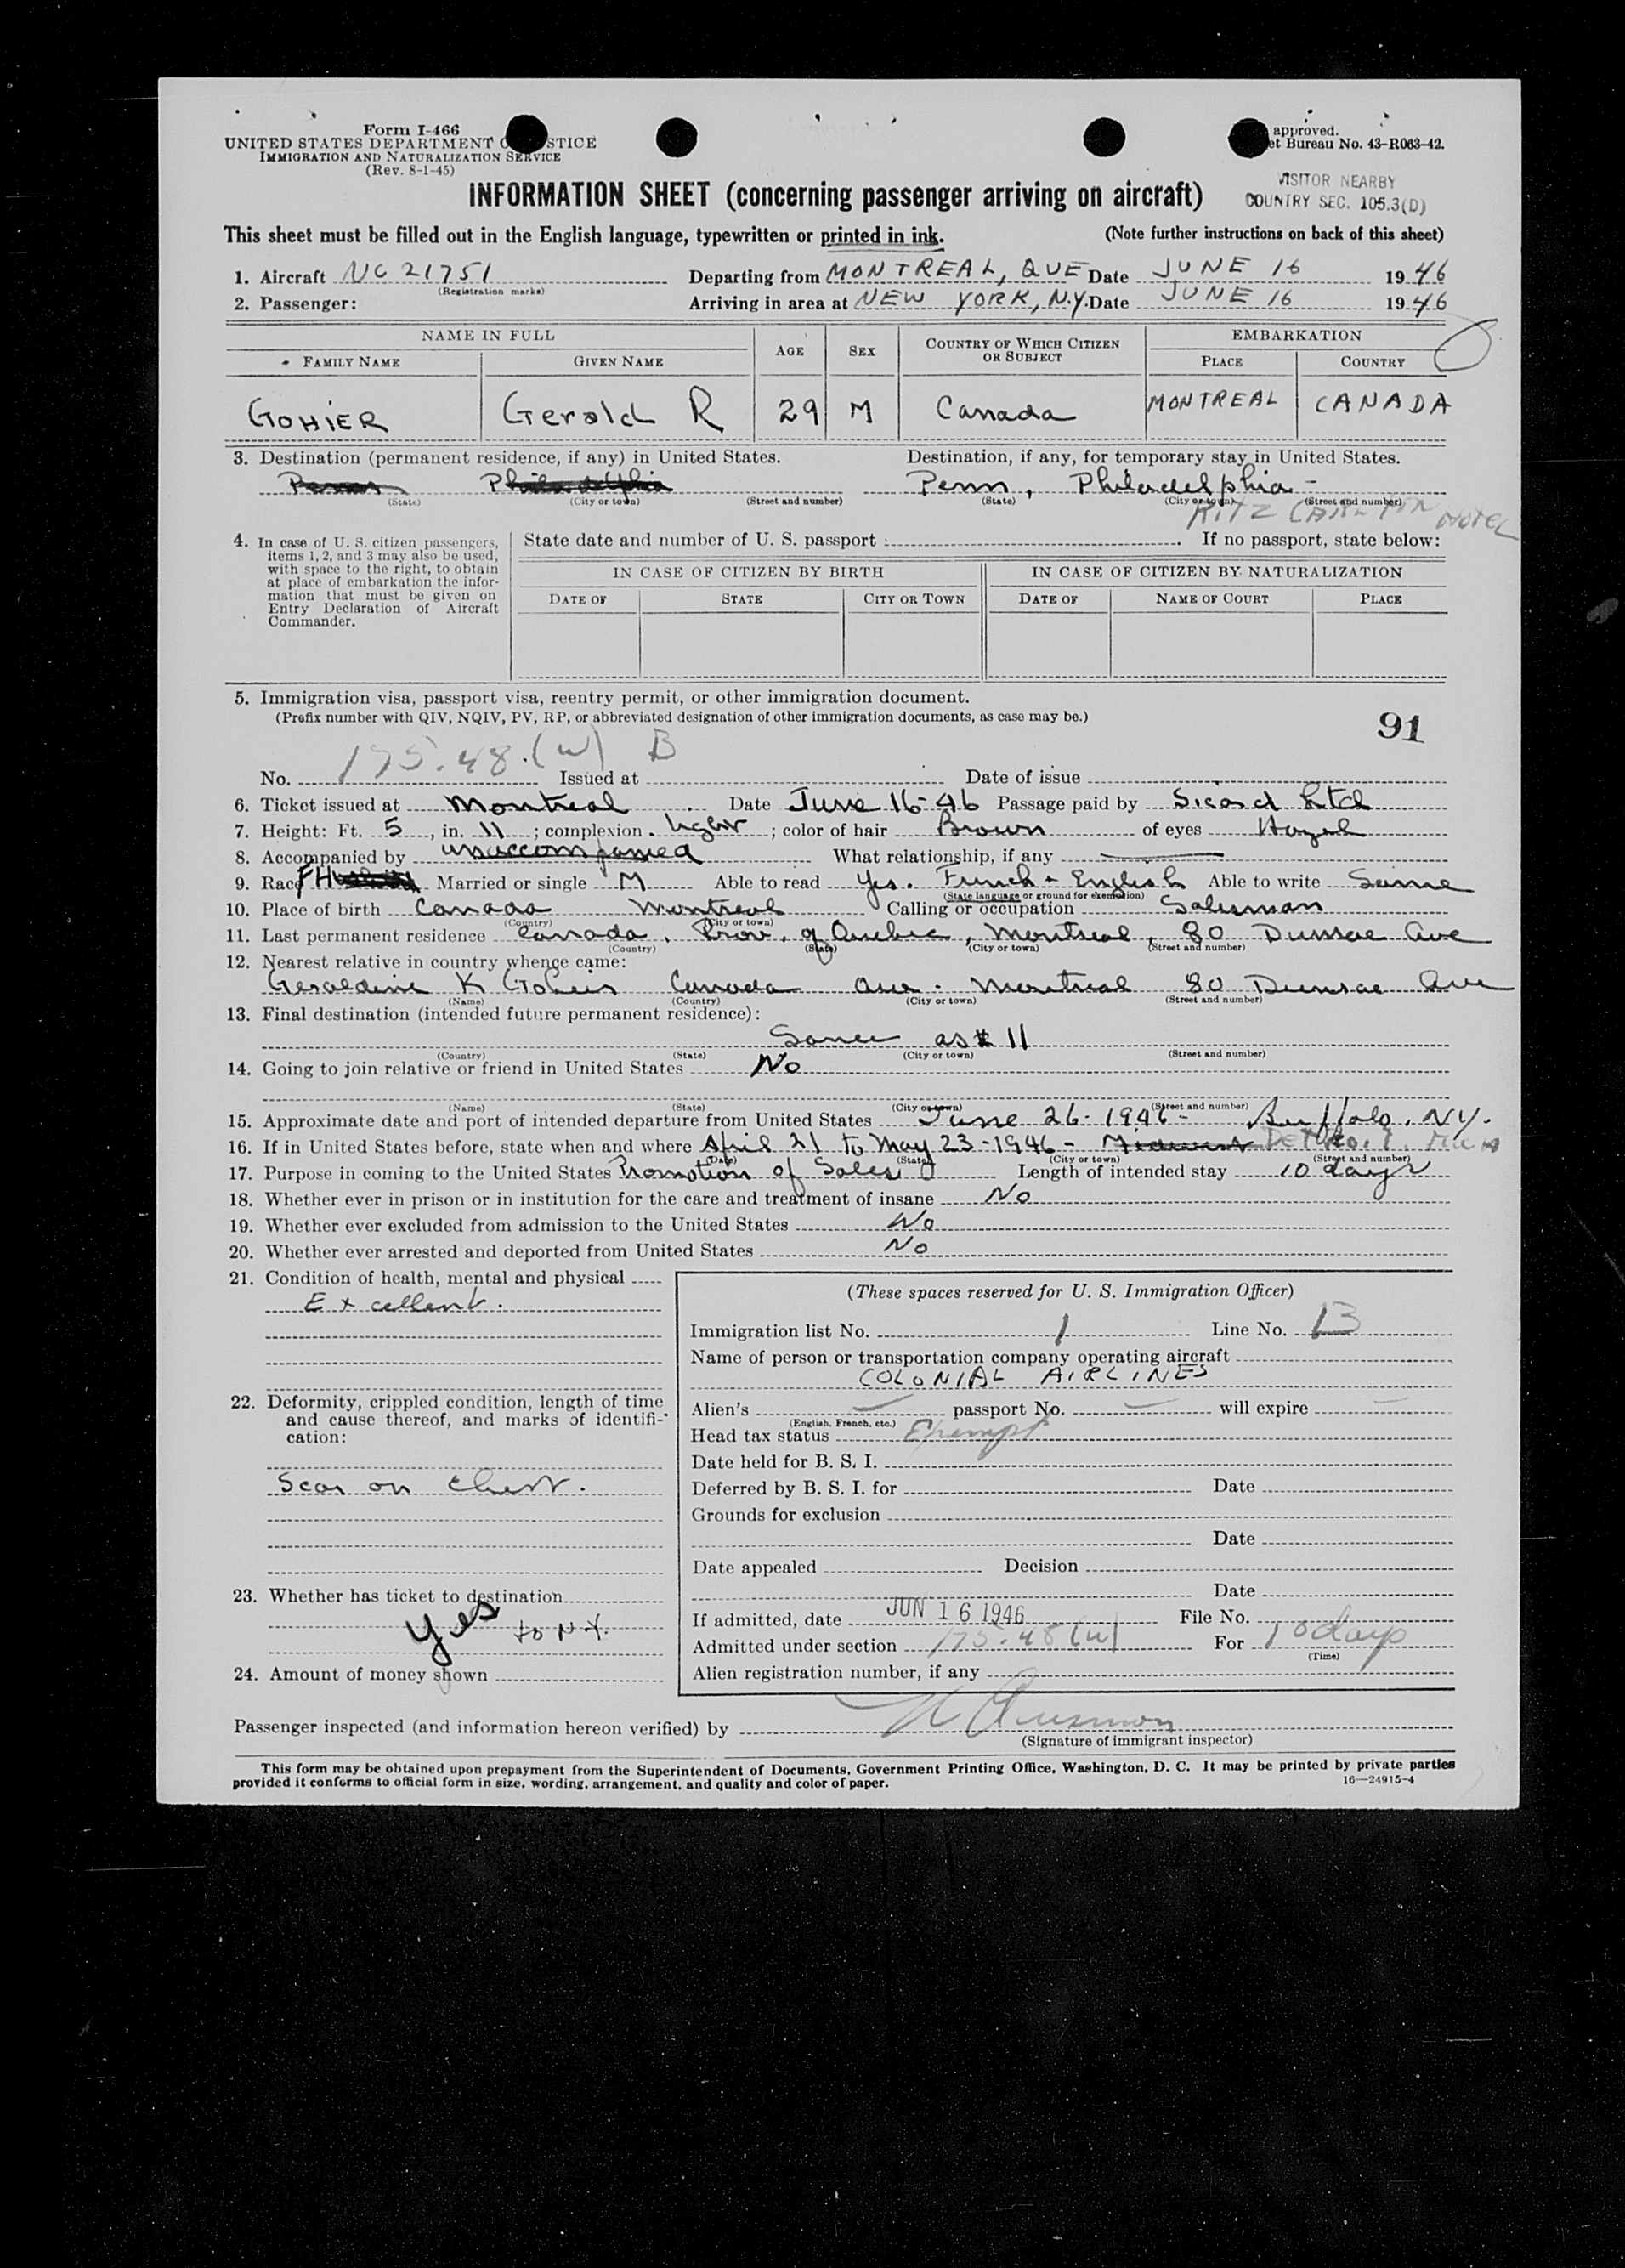 Form I-466
UNITED STATES DEPARTMENT O STICE
IMMIGRATION AND NATURALIZATION SERVICE
(Rev. 8-1-45)
approved.
et Bureau No. 43-R063-42.
INFORMATION SHEET (concerning passenger arriving on aircraft)
VISITOR NEARBY
COUNTRY SEC. 105.3(D)
This sheet must be filled out in the English language, typewritten or printed in ink. (Note further instructions on back of this sheet)
1. Aircraft NC 21751 Departing from MONTREAL, QUE Date JUNE 16 1946
(Registration marks)
2. Passenger: Arriving in area at NEW YORK, N.Y. Date JUNE 16 1946
NAME IN FULL AGE SEX COUNTRY OF WHICH CITIZEN OR SUBJECT EMBARKATION
FAMILY NAME GIVEN NAME PLACE COUNTRY
GOHIER Gerald R 29 M Canada MONTREAL CANADA
3. Destination (permanent residence, if any) in United States. Destination, if any, for temporary stay in United States.
Philadelphia Penn, Philadelphia -
(State) (City or town) (Street and number) (State) (City or town) (Street and number)
RITZ CARLTON HOTEL
4. In case of U. S. citizen passengers, items 1, 2, and 3 may also be used, with space to the right, to obtain at place of embarkation the information that must be given on Entry Declaration of Aircraft Commander.
State date and number of U. S. passport If no passport, state below:
IN CASE OF CITIZEN BY BIRTH IN CASE OF CITIZEN BY NATURALIZATION
DATE OF STATE CITY OR TOWN DATE OF NAME OF COURT PLACE
5. Immigration visa, passport visa, reentry permit, or other immigration document.
(Prefix number with QIV, NQIV, PV, RP, or abbreviated designation of other immigration documents, as case may be.)
91
No. 175.48.(W) B Issued at Date of issue
6. Ticket issued at Montreal Date June 16-46 Passage paid by Sicard Ltd
7. Height: Ft. 5, in. 11; complexion light; color of hair Brown of eyes Hazel
8. Accompanied by unaccompanied What relationship, if any
9. Race FH Married or single M Able to read Yes. French + English Able to write Same
(State language or ground for exemption)
10. Place of birth Canada Montreal Calling or occupation Salesman
(Country) (City or town)
11. Last permanent residence Canada, Prov. of Quebec, Montreal, 80 Dunrae Ave
(Country) (State) (City or town) (Street and number)
12. Nearest relative in country whence came:
Geraldine K Gohier Canada Que. Montreal 80 Dunrae Ave
(Name) (Country) (City or town) (Street and number)
13. Final destination (intended future permanent residence):
Same as # 11
(Country) (State) (City or town) (Street and number)
14. Going to join relative or friend in United States No
(Name) (State) (City or town) (Street and number)
15. Approximate date and port of intended departure from United States June 26-1946 - Buffalo, NY.
16. If in United States before, state when and where April 21 to May 23-1946 - Midwest
(Date) (State) (City or town) (Street and number)
17. Purpose in coming to the United States Promotion of Sales Length of intended stay 10 days
18. Whether ever in prison or in institution for the care and treatment of insane No
19. Whether ever excluded from admission to the United States No
20. Whether ever arrested and deported from United States No
21. Condition of health, mental and physical
Excellent.
22. Deformity, crippled condition, length of time and cause thereof, and marks of identification:
Scar on chest.
23. Whether has ticket to destination
Yes to NY.
24. Amount of money shown
(These spaces reserved for U. S. Immigration Officer)
Immigration list No. 1 Line No. 13
Name of person or transportation company operating aircraft
COLONIAL AIRLINES
Alien's passport No. will expire
(English, French, etc.)
Head tax status Exempt
Date held for B. S. I.
Deferred by B. S. I. for Date
Grounds for exclusion
Date
Date appealed Decision
Date
If admitted, date JUN 16 1946 File No.
Admitted under section 175.48(W) For 10 days
(Time)
Alien registration number, if any
Passenger inspected (and information hereon verified) by
(Signature of immigrant inspector)
This form may be obtained upon prepayment from the Superintendent of Documents, Government Printing Office, Washington, D. C. It may be printed by private parties
provided it conforms to official form in size, wording, arrangement, and quality and color of paper.
16—24915-4